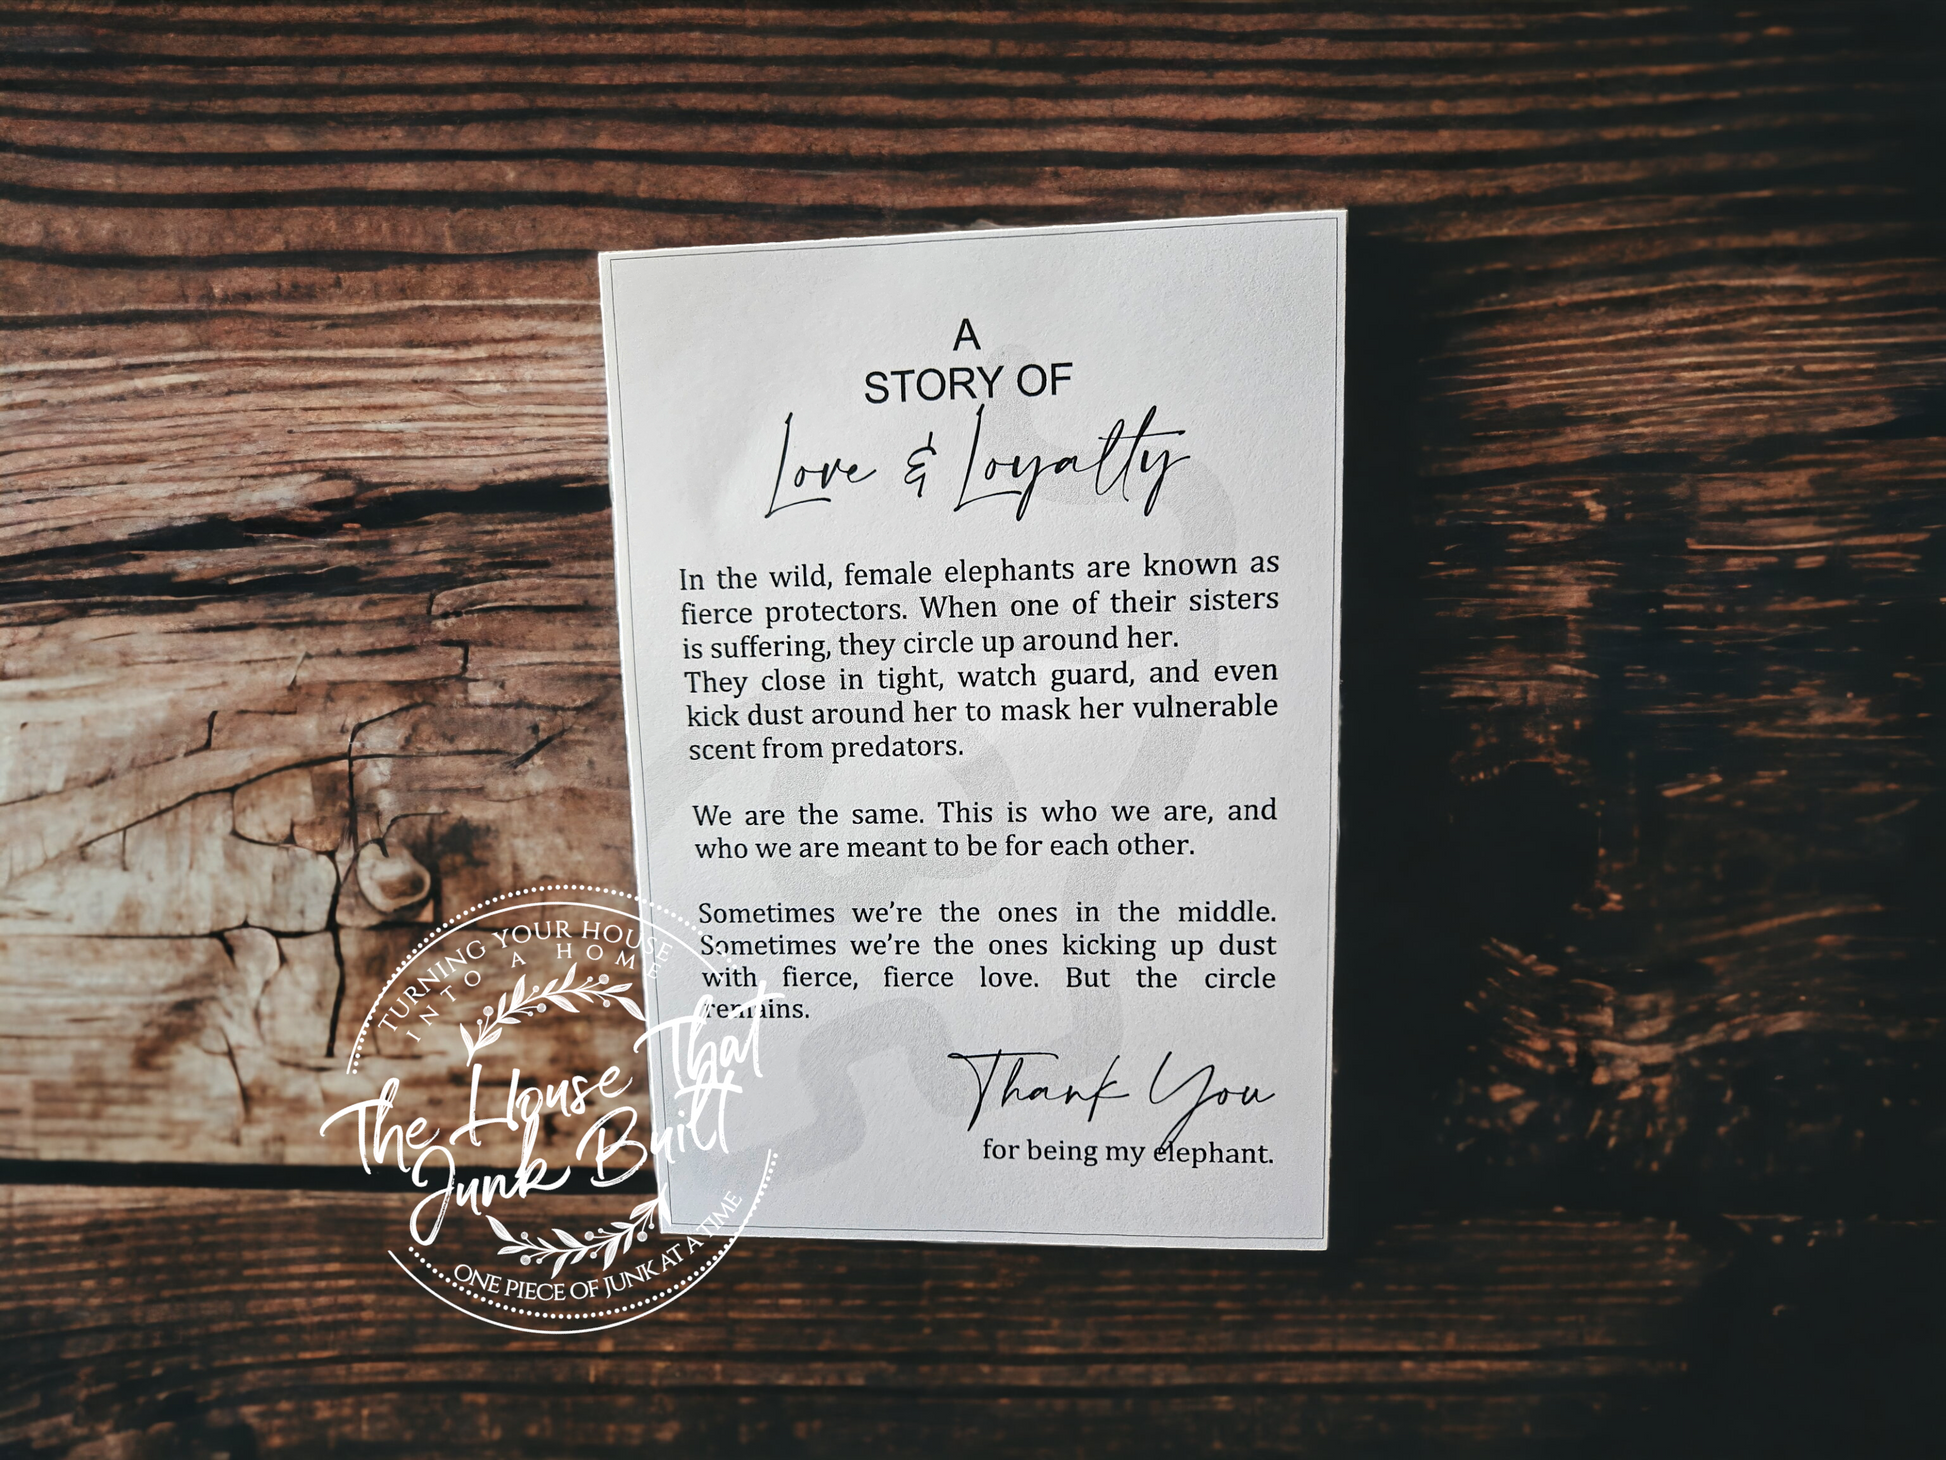 A
STORY OF
Love & Loyalty
In the wild, female elephants are known as
fierce protectors. When one of their sisters
is suffering, they circle up around her.
They close in tight, watch guard, and even
kick dust around her to mask her vulnerable
scent from predators.
We are the same. This is who we are, and
who we are meant to be for each other.
Sometimes we’re the ones in the middle.
Sometimes we’re the ones kicking up dust
with fierce, fierce love. But the circle
remains.
Thank You
for being my elephant.
TURNING YOUR HOUSE
INTO A HOME
The House That
Junk Built
ONE PIECE OF JUNK AT A TIME